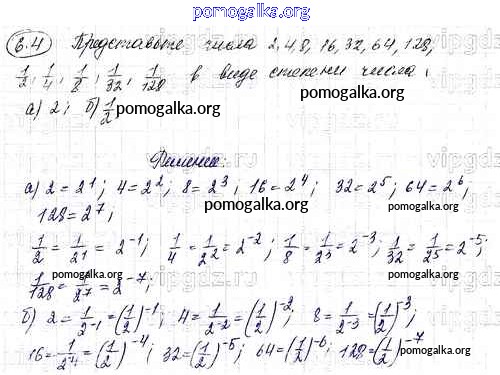 pomogalka.org
6.4 Представьте числа 2, 4, 8, 16, 32, 64, 128,
1/2, 1/4, 1/8, 1/32, 1/128 в виде степени числа:
а) 2; б) 1/2 pomogalka.org
Решение:
а) 2 = 2^1; 4 = 2^2; 8 = 2^3; 16 = 2^4; 32 = 2^5; 64 = 2^6;
128 = 2^7; pomogalka.org pomogalka.org
1/2 = 1/2^1 = 2^-1; 1/4 = 1/2^2 = 2^-2; 1/8 = 1/2^3 = 2^-3; 1/32 = 1/2^5 = 2^-5;
1/128 = 1/2^7 = 2^-7; pomogalka.org
б) 2 = 1/2^-1 = (1/2)^-1; 4 = 1/2^-2 = (1/2)^-2; 8 = 1/2^-3 = (1/2)^-3
16 = 1/2^4 = (1/2)^-4; 32 = (1/2)^-5; 64 = (1/2)^-6; 128 = (1/2)^-7
pomogalka.org pomogalka.org